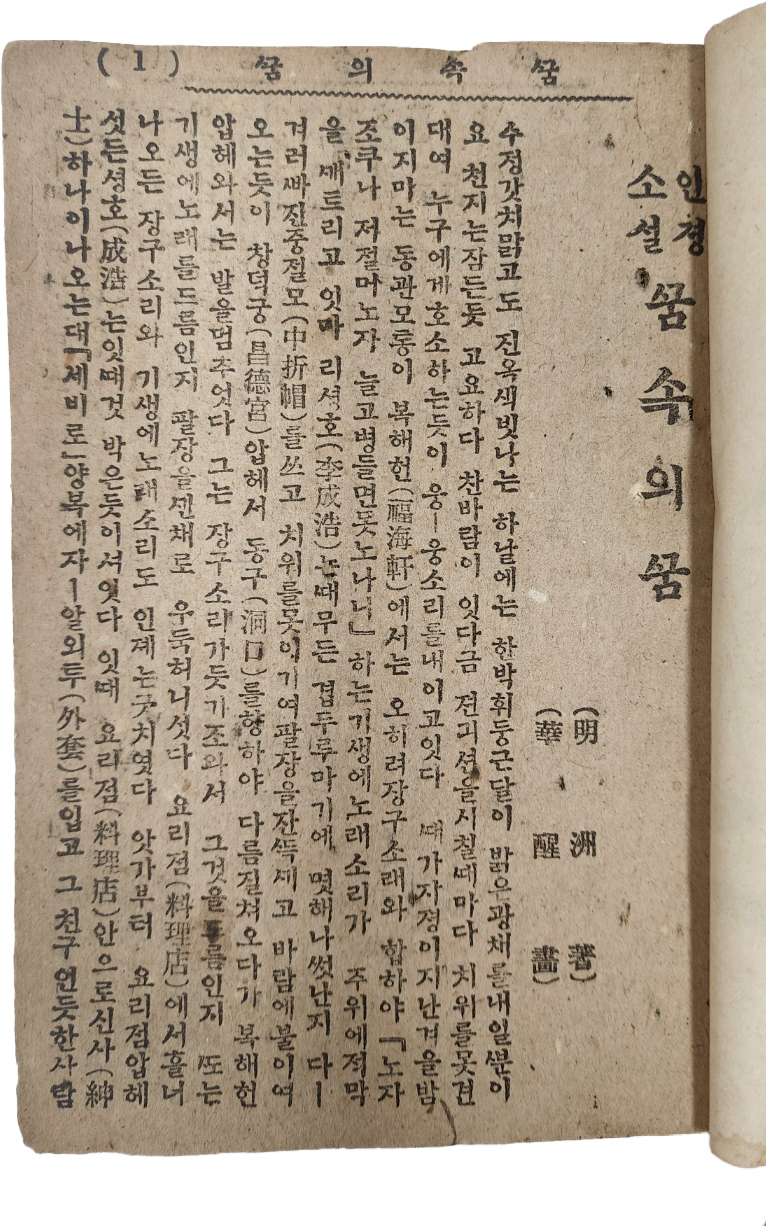 (1) 꿈 의 속 꿈
인정
소설
꿈속의꿈
(明洲著)
(華醒畵)
수정갓치맑고도 진옥색빗나는 하날에는 한박휘둥근달이 밝은광채를내일뿐이
요 천지는잠든듯 고요하다 찬바람이 잇다금 전긔션을시칠때마다 치위를못견
대여 누구에게호소하는듯이 웅ㅣ웅소리를내이고잇다 때가자졍이지난겨을밤
이지마는 동관모통이 복해헌(福海軒)에서는 오히려장구소래와 합하야 『노자
조쿠나 저절머노자 늘고병들면못노나니』 하는기생에노래소리가 주위에적막
을 깨트리고 잇따 리셩호(李成浩)는때무든 겹두루마기에, 몃해나썻난지 다ㅣ
겨러빠진중절모(中折帽)를쓰고 치위를못익이여팔장을잔뜩찌고 바람에불이여
오는듯이 창덕궁(昌德宮)압헤서 동구(洞口)를향하야 다름질쳐오다가 복해헌
압헤와서는 발을멈추엇다 그는 장구소리가듯기조와서 그것을드름인지 또는
기생에노래를드름인지 팔장을낀채로 우둑허니섯다 요리점(料理店)에서흘너
나오든 장구소리와 기생에노래소리도 인졔는긋치엿다 앗가부터 요리점압헤
섯든셩호(成浩)는잇때것 박은듯이셔잇다 잇때 요리점(料理店)안으로신사(紳
士)하나이나오는대『세비로』양복에자ㅣ알외투(外套)를입고 그 친구인듯한사람